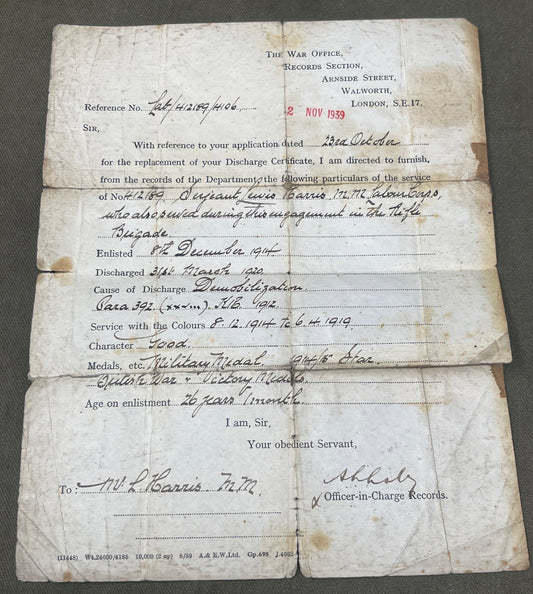 THE WAR OFFICE,
RECORDS SECTION,
ARNSIDE STREET,
WALWORTH,
LONDON, S.E.17.
Reference No. Lab/412189/4106.
2 NOV 1939
SIR,
With reference to your application dated 23rd October
for the replacement of your Discharge Certificate, I am directed to furnish,
from the records of the Department, the following particulars of the service
of No. 412189 Serjeant Lewis Harris M.M. Labour Corps,
who also served during this engagement in the Rifle
Brigade.
Enlisted 8th December 1914
Discharged 31st March 1920.
Cause of Discharge Demobilization.
Para 392. K.R. 1912.
Service with the Colours 8.12.1914 to 6.4.1919.
Character Good.
Medals, etc. Military Medal. 1914/15 Star.
British War & Victory Medals.
Age on enlistment 26 years 1 month.
I am, Sir,
Your obedient Servant,
To: Mr. L. Harris. M.M.
Officer-in-Charge Records.
(11448) Wt.24600/4185 10,000 (2 sp) 8/39 A.& E.W.Ltd. Gp.698 J.4602